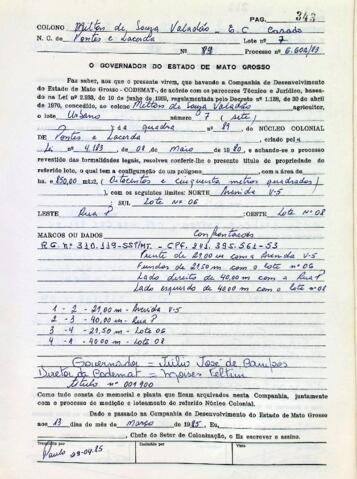 PAG. 343
COLONO Milton de Souza Valadão - E.C. Casado
N. C. de Pontes e Lacerda Lote nº 7
Nº 89 Processo nº 6.602/83
O GOVERNADOR DO ESTADO DE MATO GROSSO
Faz saber, aos que o presente virem, que havendo a Companhia de Desenvolvimento
do Estado de Mato Grosso - CODEMAT-, de acôrdo com os pareceres Técnico e Jurídico, basea-
da na Lei nº 2.933, de 10 de junho de 1969, regulamentada pelo Decreto nº 1.138, de 20 de abril
de 1970, concedido, ao colono Milton de Souza Valadão agricultor,
o lote Urbano número 7 (sete)
da quadra nº 89, DO NÚCLEO COLONIAL
DE Pontes e Lacerda, criado pela
Lei nº 4.183, de 08 de Maio de 1980, e achando-se o processo
revestido das formalidades legais, resolveu conferir-lhe o presente título de propriedade do
referido lote, o qual tem a configuração de um polígono com a área de
has 850,00 mts2, (Oitocentos e cinquenta metros quadrados)
, com os seguintes limites: NORTE Avenida V-5
SUL Lote Nº 06
LESTE Rua P :OESTE Lote Nº 08
MARCOS OU DADOS Confrontações
R.G. nº 310.119-SSP/MT. - CPF. 241.395.561-53
Frente de 21,00 m com a Avenida V-5
Fundos de 21,50 m com o lote nº 06
Lado direito de 40,00 m com a Rua P
Lado esquerdo de 40,00 m com o lote nº 08
1 - 2 - 21,00 m - Avenida V-5
2 - 3 - 40,00 m - Rua P
3 - 4 - 21,50 m - Lote 06
4 - 1 - 40,00 m - Lote 08
Governador = Júlio José de Campos
Diretor da Codemat = Moises Feltrin
Título nº 001900
Como tudo consta do memorial e planta que ficam arquivados nesta Companhia, juntamente
com o processo de medição e loteamento do referido Núcleo Colonial.
Dado e passado na Companhia de Desenvolvimento do Estado de Mato Grosso
aos 13 dias do mês de março de 1985, Eu,
, Chefe do Setor de Colonização, o fiz escrever e assino.
Conferido
Visto
Paulo 09.04.85